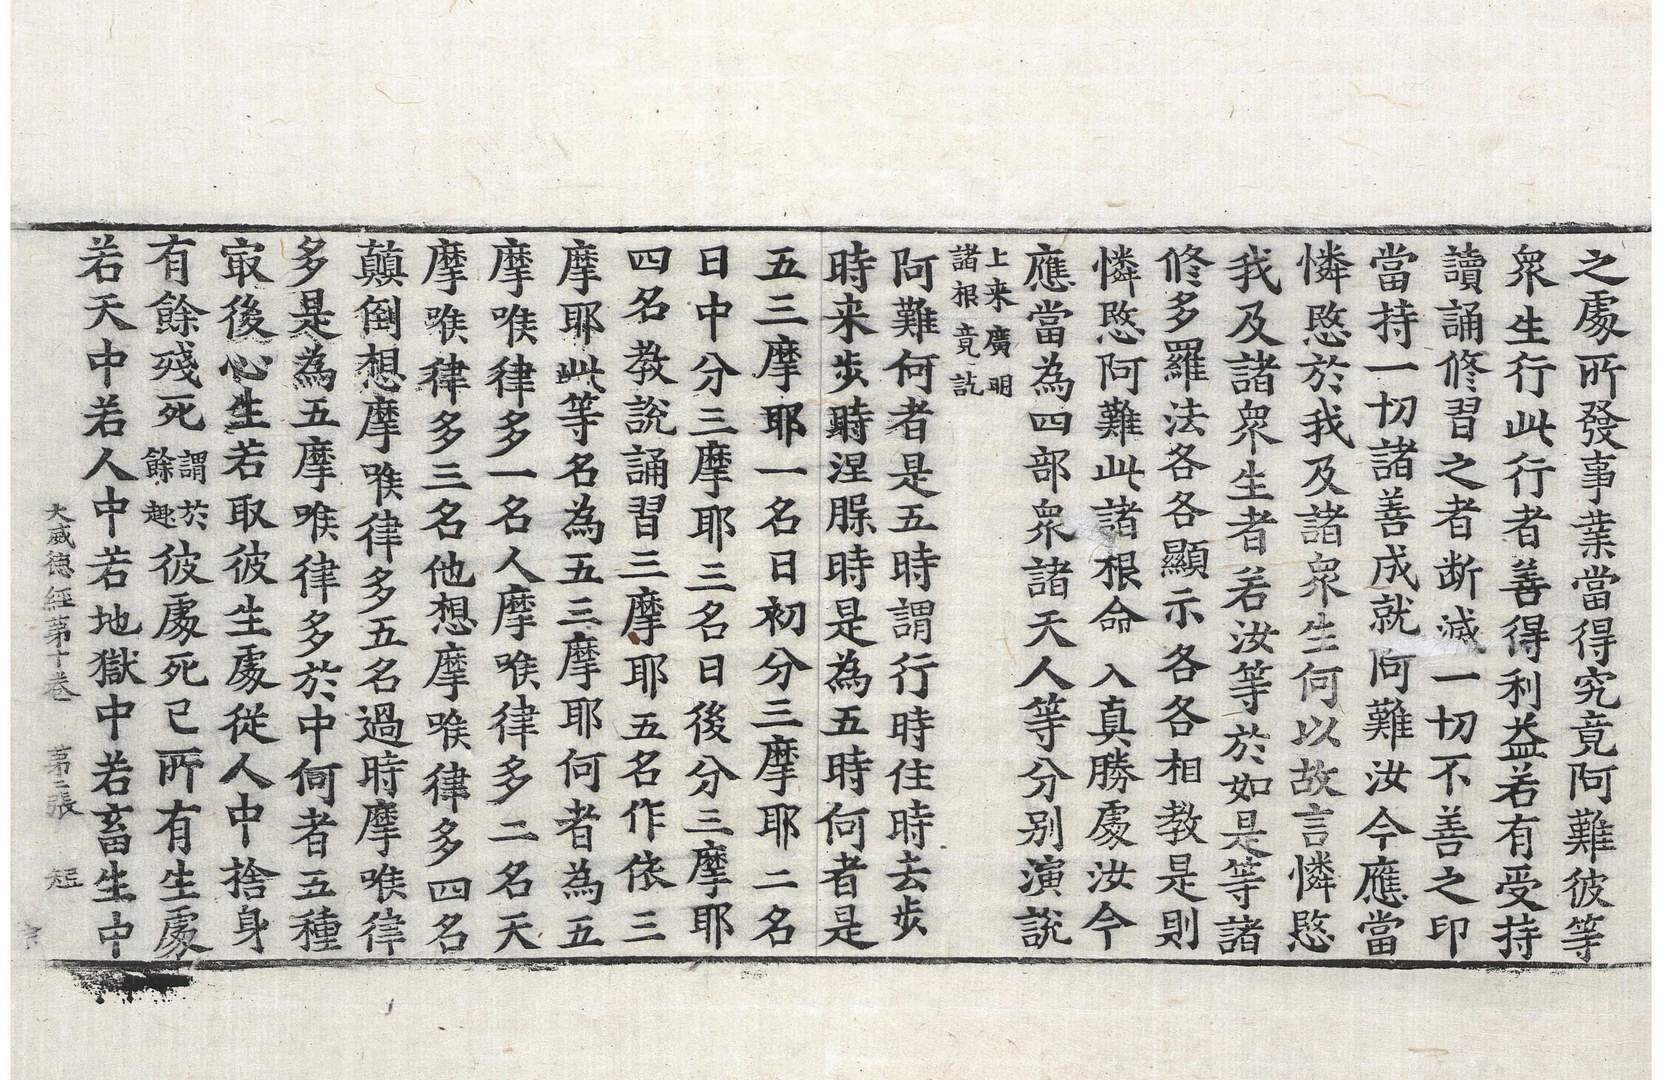 之處所發事業當得究竟阿難彼等
衆生行此行者善得利益若有受持
讀誦修習之者断滅一切不善之印
當持一切諸善成就阿難汝今應當
憐愍於我及諸衆生何以故言憐愍
我及諸衆生者若汝等於如是等諸
修多羅法各各顯示各各相教是則
憐愍阿難此諸根命入真勝處汝今
應當為四部衆諸天人等分别演說
上来廣明
諸根竟訖
阿難何者是五時謂行時住時去步
時来步時涅脲時是為五時何者是
五三摩耶一名日初分三摩耶二名
日中分三摩耶三名日後分三摩耶
四名教說誦習三摩耶五名作依三
摩耶此等名為五三摩耶何者為五
摩唯律多一名人摩唯律多二名天
摩唯律多三名他想摩唯律多四名
顛倒想摩唯律多五名過時摩唯律
多是為五摩唯律多於中何者五種
㝡後心生若取彼生處從人中捨身
有餘殘死謂於餘趣彼處死已所有生處
若天中若人中若地獄中若畜生中
大威德經第十卷 第二張 短